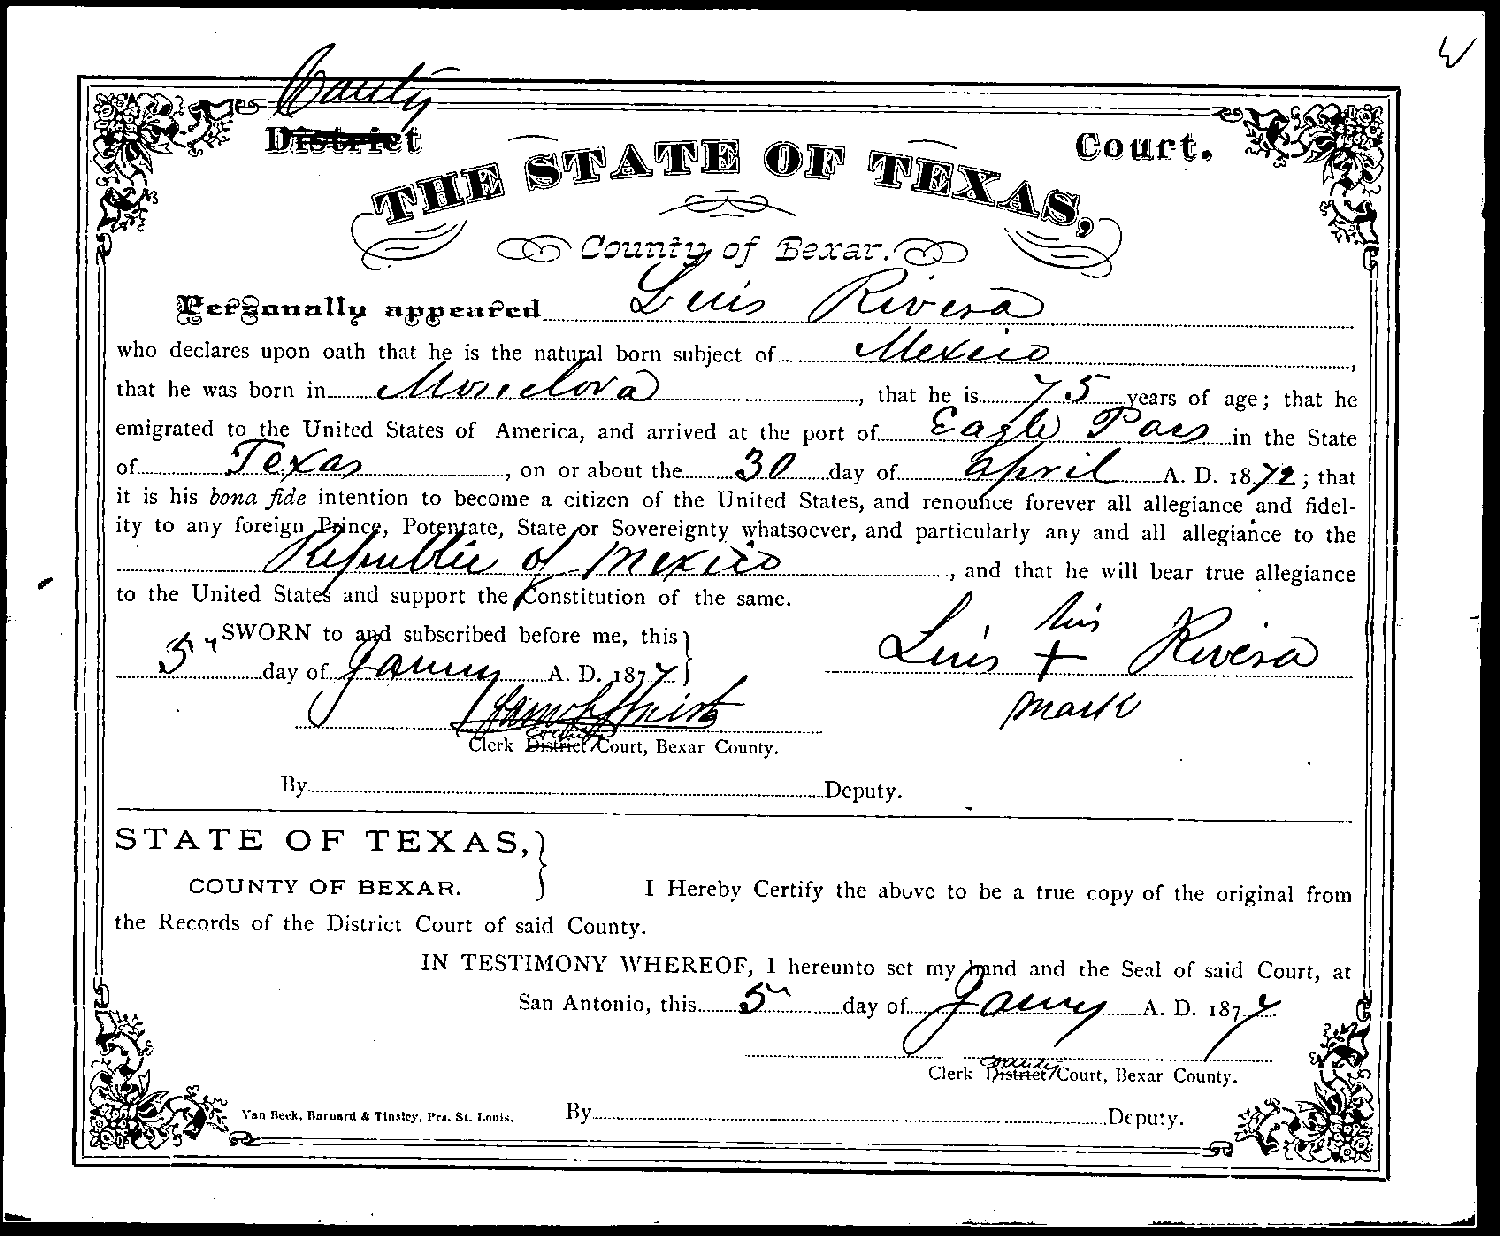 W
County
District Court.
THE STATE OF TEXAS,
County of Bexar.
Personally appeared Luis Rivera
who declares upon oath that he is the natural born subject of Mexico,
that he was born in Monclova, that he is 75 years of age; that he
emigrated to the United States of America, and arrived at the port of Eagle Pass in the State
of Texas, on or about the 30 day of April A. D. 1872; that
it is his bona fide intention to become a citizen of the United States, and renounce forever all allegiance and fidel-
ity to any foreign Prince, Potentate, State or Sovereignty whatsoever, and particularly any and all allegiance to the
Republic of Mexico, and that he will bear true allegiance
to the United States and support the Constitution of the same.
SWORN to and subscribed before me, this
5" day of Jany A. D. 187
his
Luis + Rivera
mark
County
Clerk District Court, Bexar County.
By Deputy.
STATE OF TEXAS,
COUNTY OF BEXAR.
I Hereby Certify the above to be a true copy of the original from
the Records of the District Court of said County.
IN TESTIMONY WHEREOF, I hereunto set my hand and the Seal of said Court, at
San Antonio, this 5" day of Jany A. D. 187
County
Clerk District Court, Bexar County.
Van Beek, Barnard & Tinsley, Prs. St. Louis.
By Deputy.